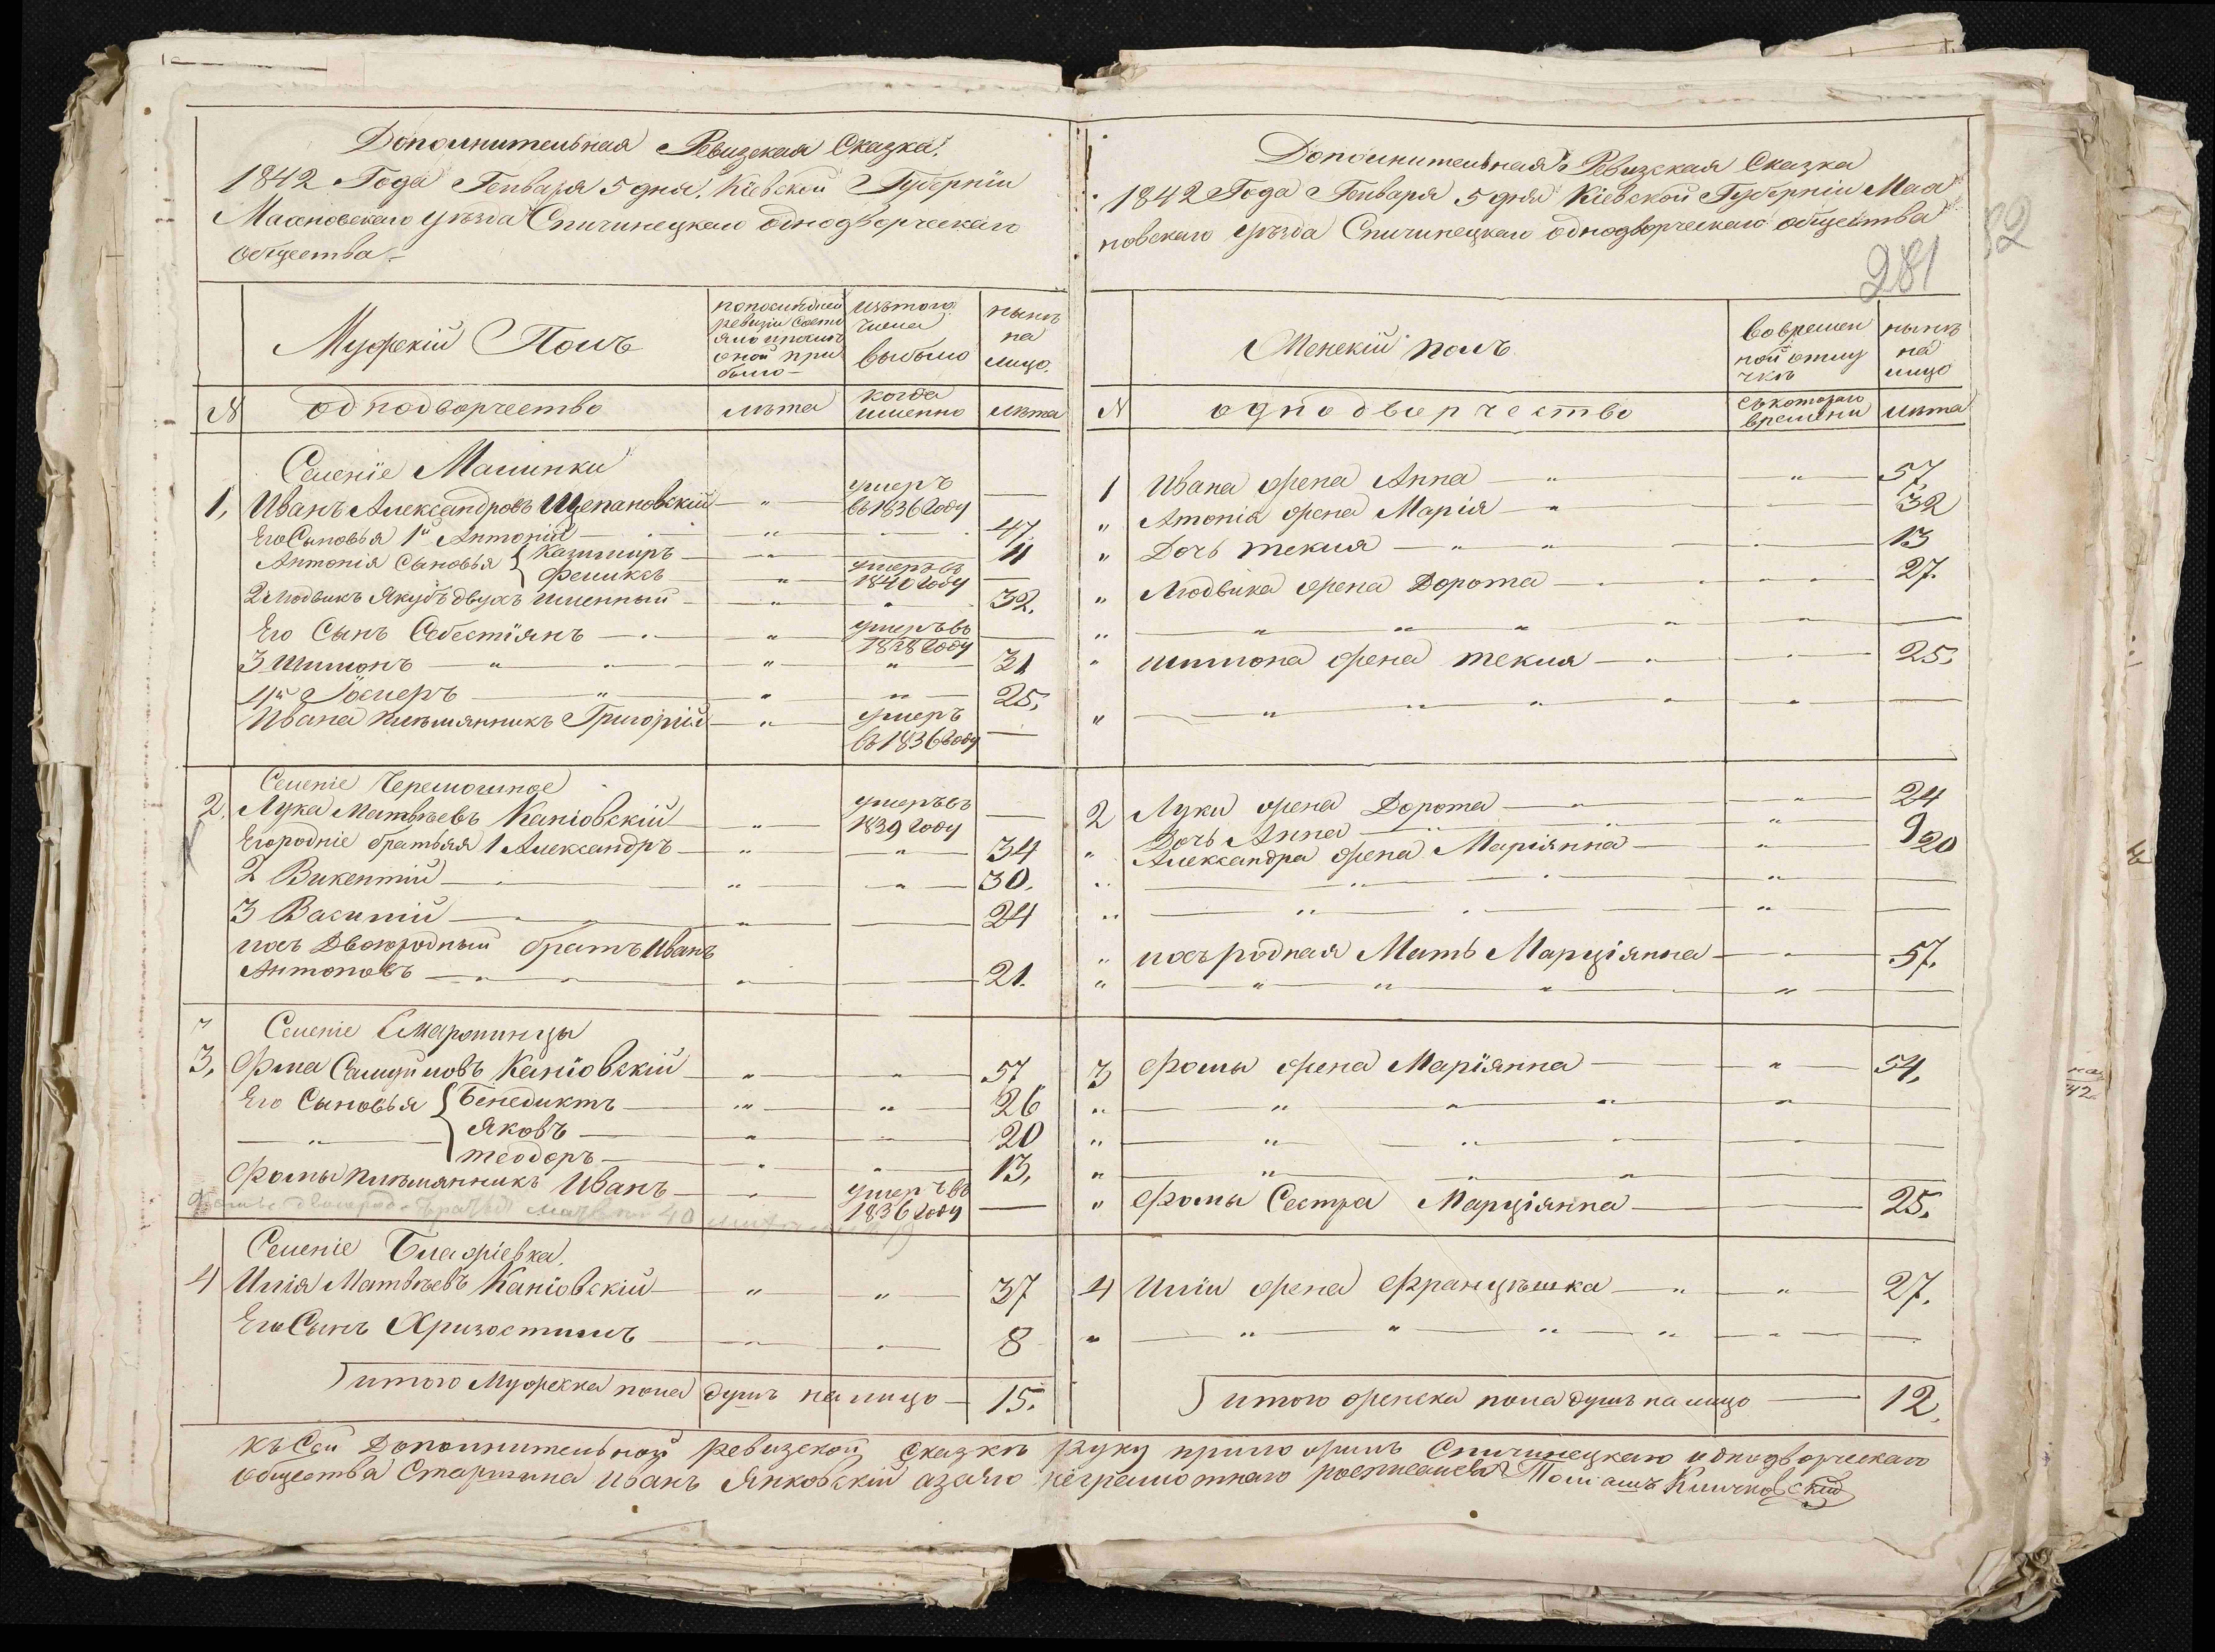 Дополнительная Ревизская Сказка.
1842 Года Генваря 5 дня. Кіевской Губерніи
Махновскаго уѣзда Спичинецкаго однодворческаго
общества
Мужскій Полъ
по последней ревизіи состояло и после оной прибыло
изъ того числа выбыло
нынѣ на лицо.
N
однодворчество
лѣта
когда именно
лѣта
Селеніе Малинки
1, Иванъ Александровъ Щепановскій — " — умеръ въ 1836 году —
Его Сыновья 1й Антоній — " — 47.
Антонія Сыновья { Казимиръ — " — 11
Феликсъ — " — умеръ въ 1840 году —
2й Людвикъ Якубъ двухъ именный — " — " 32.
Его Сынъ Себестіянъ — " — умеръ въ 1838 году —
3 Шимонъ — " — " — 31
4й — " — " — 25,
Ивана племянникъ Григорій — " — умеръ въ 1836 году —
Селеніе Черемошное
2, Лука Матвѣевъ Каніовскій — " — умеръ въ 1839 году —
Его родніе братья 1 Александръ — " — " — 34
2 Викентій — " — " — 30.
3 Василій — " — 24
ихъ Двоюродный братъ Иванъ
Антоновъ — " — 21.
Селеніе
3, Фома Каніовскій — " — " — 57
Его Сыновья { Бенедиктъ — " — " — 26
— " — Яковъ — " — 20
теодоръ — " — " — 13,
Фомы племянникъ Иванъ — " — умеръ въ 1836 году —
40
Селеніе Благіевка.
4 Илія Матвѣевъ Каніовскій — " — " — 37
Его Сынъ Хризостимъ — " — " — 8
итого Мужеска пола душъ на лицо — 15.
Дополнительная Ревизская Сказка
1842 Года Генваря 5 дня Кіевской Губерніи Мах
новскаго уѣзда Спичинецкаго однодворческаго общества
281
82
Женскій полъ
во времен
ной отлу
чкѣ
нынѣ
на
лицо
N
однодворчество
съ котораго
времени
лѣта
1 Ивана жена Анна — " — " — 57,
" Антонія жена Марія — " — 32
" Дочь текля — " — " — 13
" Людвика жена Дорота — " — 27.
" — " — " — " — " —
" шимона жена текля — " — 25,
" — " — " — " — " —
2 Луки жена Дорота — " — " — 24
Дочь Анна — " — " — 9
" Александра жена Маріянна — " — 20
" — " — " — " —
" — " — " — " —
" ихъ родная Мать Марціянна — " — 57.
" — " — " — " — " —
3 Фомы жена Маріянна — " — 54,
" — " — " — " — " —
" — " — " — " — " —
" — " — " — " —
" Фомы Сестра Марціянна — 25,
4 Иліи жена Францѣшка — " — " — 27.
" — " — " — " — " —
итого женска пола душъ на лицо — 12.
къ Сей Дополнительной ревизской сказкѣ руку приложилъ Спичинецкаго однодворческаго
общества Старшина Иванъ Янковскій а за его неграмотнаго росписался